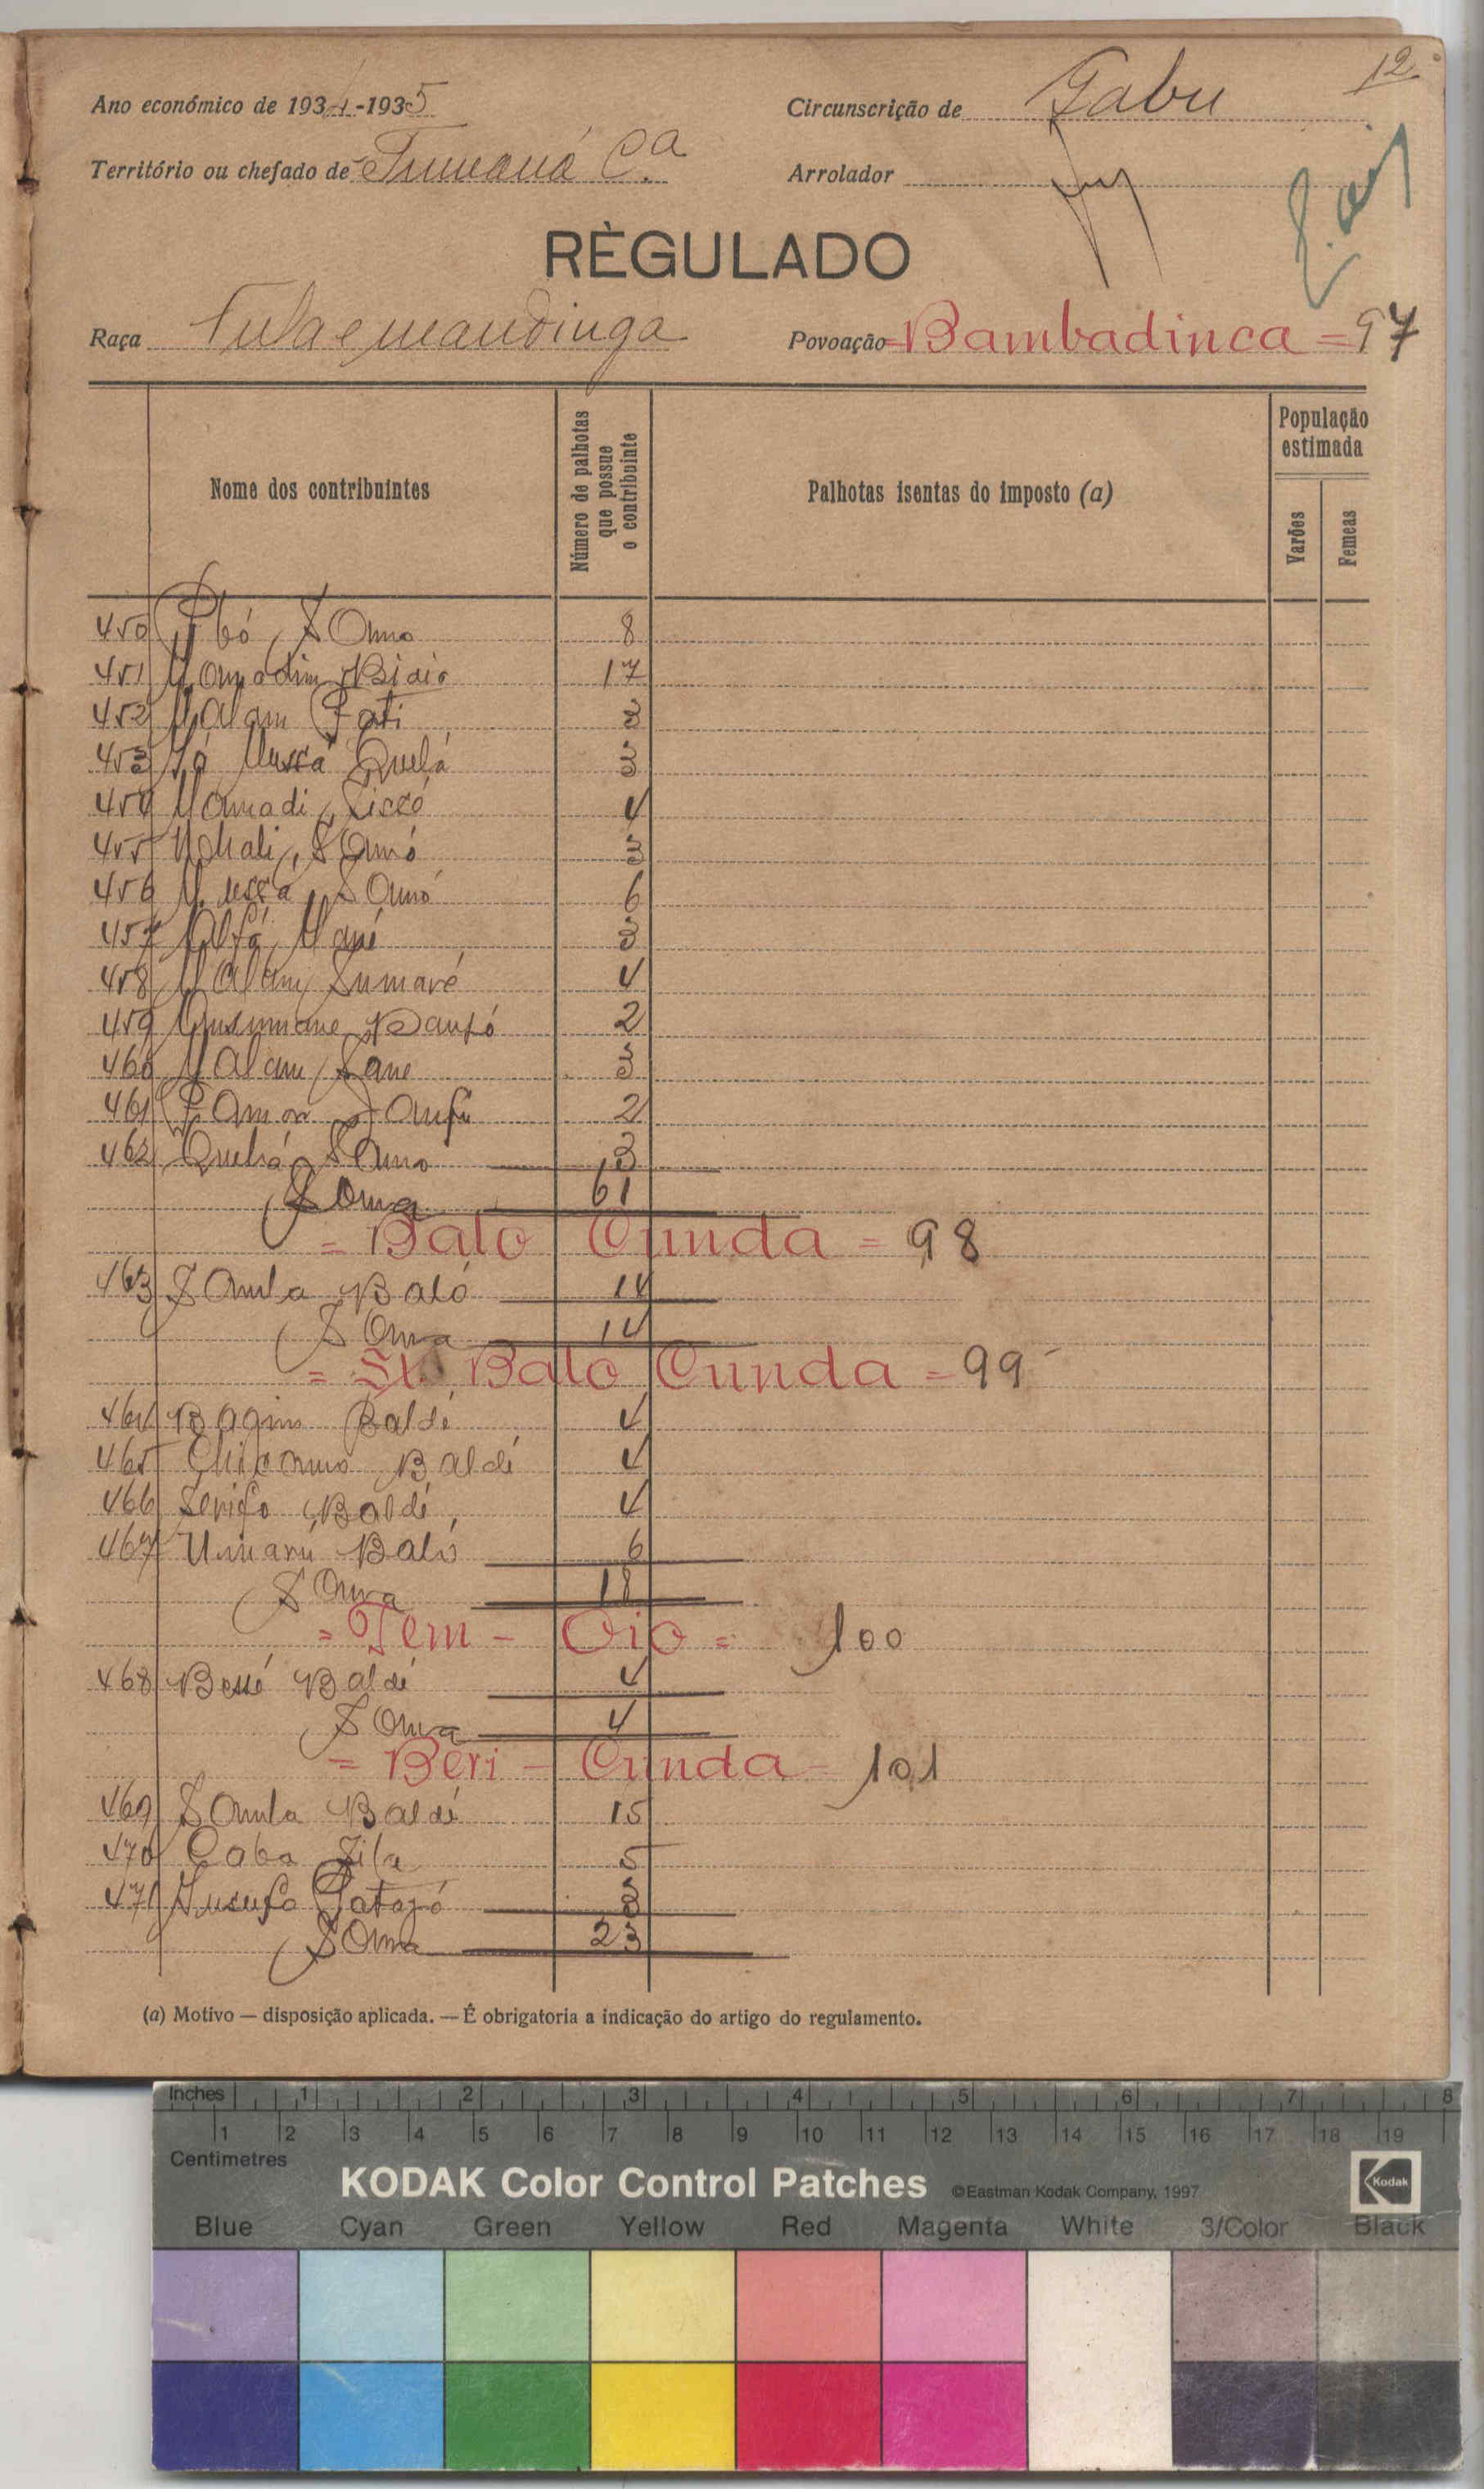 12
Ano económico de 1934-1935
Circunscrição de Gabu
Território ou chefado de Tumaná C.a
Arrolador
RÈGULADO
Raça Fula e mandinga
Povoação = Bambadinca = 97
Nome dos contribuintes
Número de palhotas que possue o contribuinte
Palhotas isentas do imposto (a)
População estimada
Varões
Femeas
450 8
451 17
452 Malam Fati 2
453 Mussá Quelá 3
454 Mamadi Sissó 4
455 3
456 Mussá 6
457 Alfá Mané 3
458 Malam Sumaré 4
459 2
460 Malam Sane 3
461 2
462 3
Soma 61
= Balo Cunda = 98
463 Samba Baló 14
Soma 14
= St. Balo Cunda = 99
464 Baldé 4
465 Baldé 4
466 Serifo Baldé 4
467 Umarú Baló 6
Soma 18
= Tem - Oio = 100
468 Baldé 4
Soma 4
= Beri - Cunda = 101
469 Samba Baldé 15
470 Caba Sila 5
471 3
Soma 23
(a) Motivo — disposição aplicada. — É obrigatoria a indicação do artigo do regulamento.
Inches 1 2 3 4 5 6 7 8
1 2 3 4 5 6 7 8 9 10 11 12 13 14 15 16 17 18 19
Centimetres
KODAK Color Control Patches ©Eastman Kodak Company, 1997 Kodak
Blue Cyan Green Yellow Red Magenta White 3/Color Black